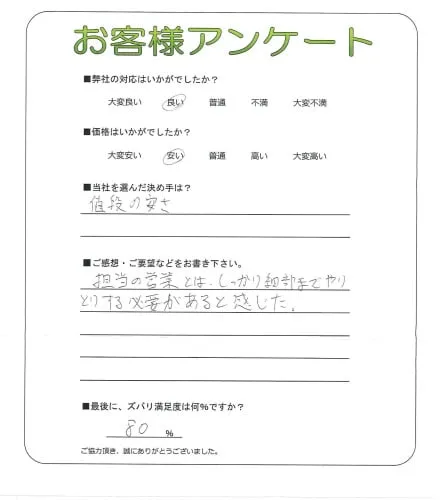 お客様アンケート
■弊社の対応はいかがでしたか？
大変良い 良い 普通 不満 大変不満
■価格はいかがでしたか？
大変安い 安い 普通 高い 大変高い
■当社を選んだ決め手は？
値段の安さ
■ご感想・ご要望などをお書き下さい。
担当の営業とは、しっかり細部までやり
とりする必要があると感じた。
■最後に、ズバリ満足度は何％ですか？
80 ％
ご協力頂き、誠にありがとうございました。